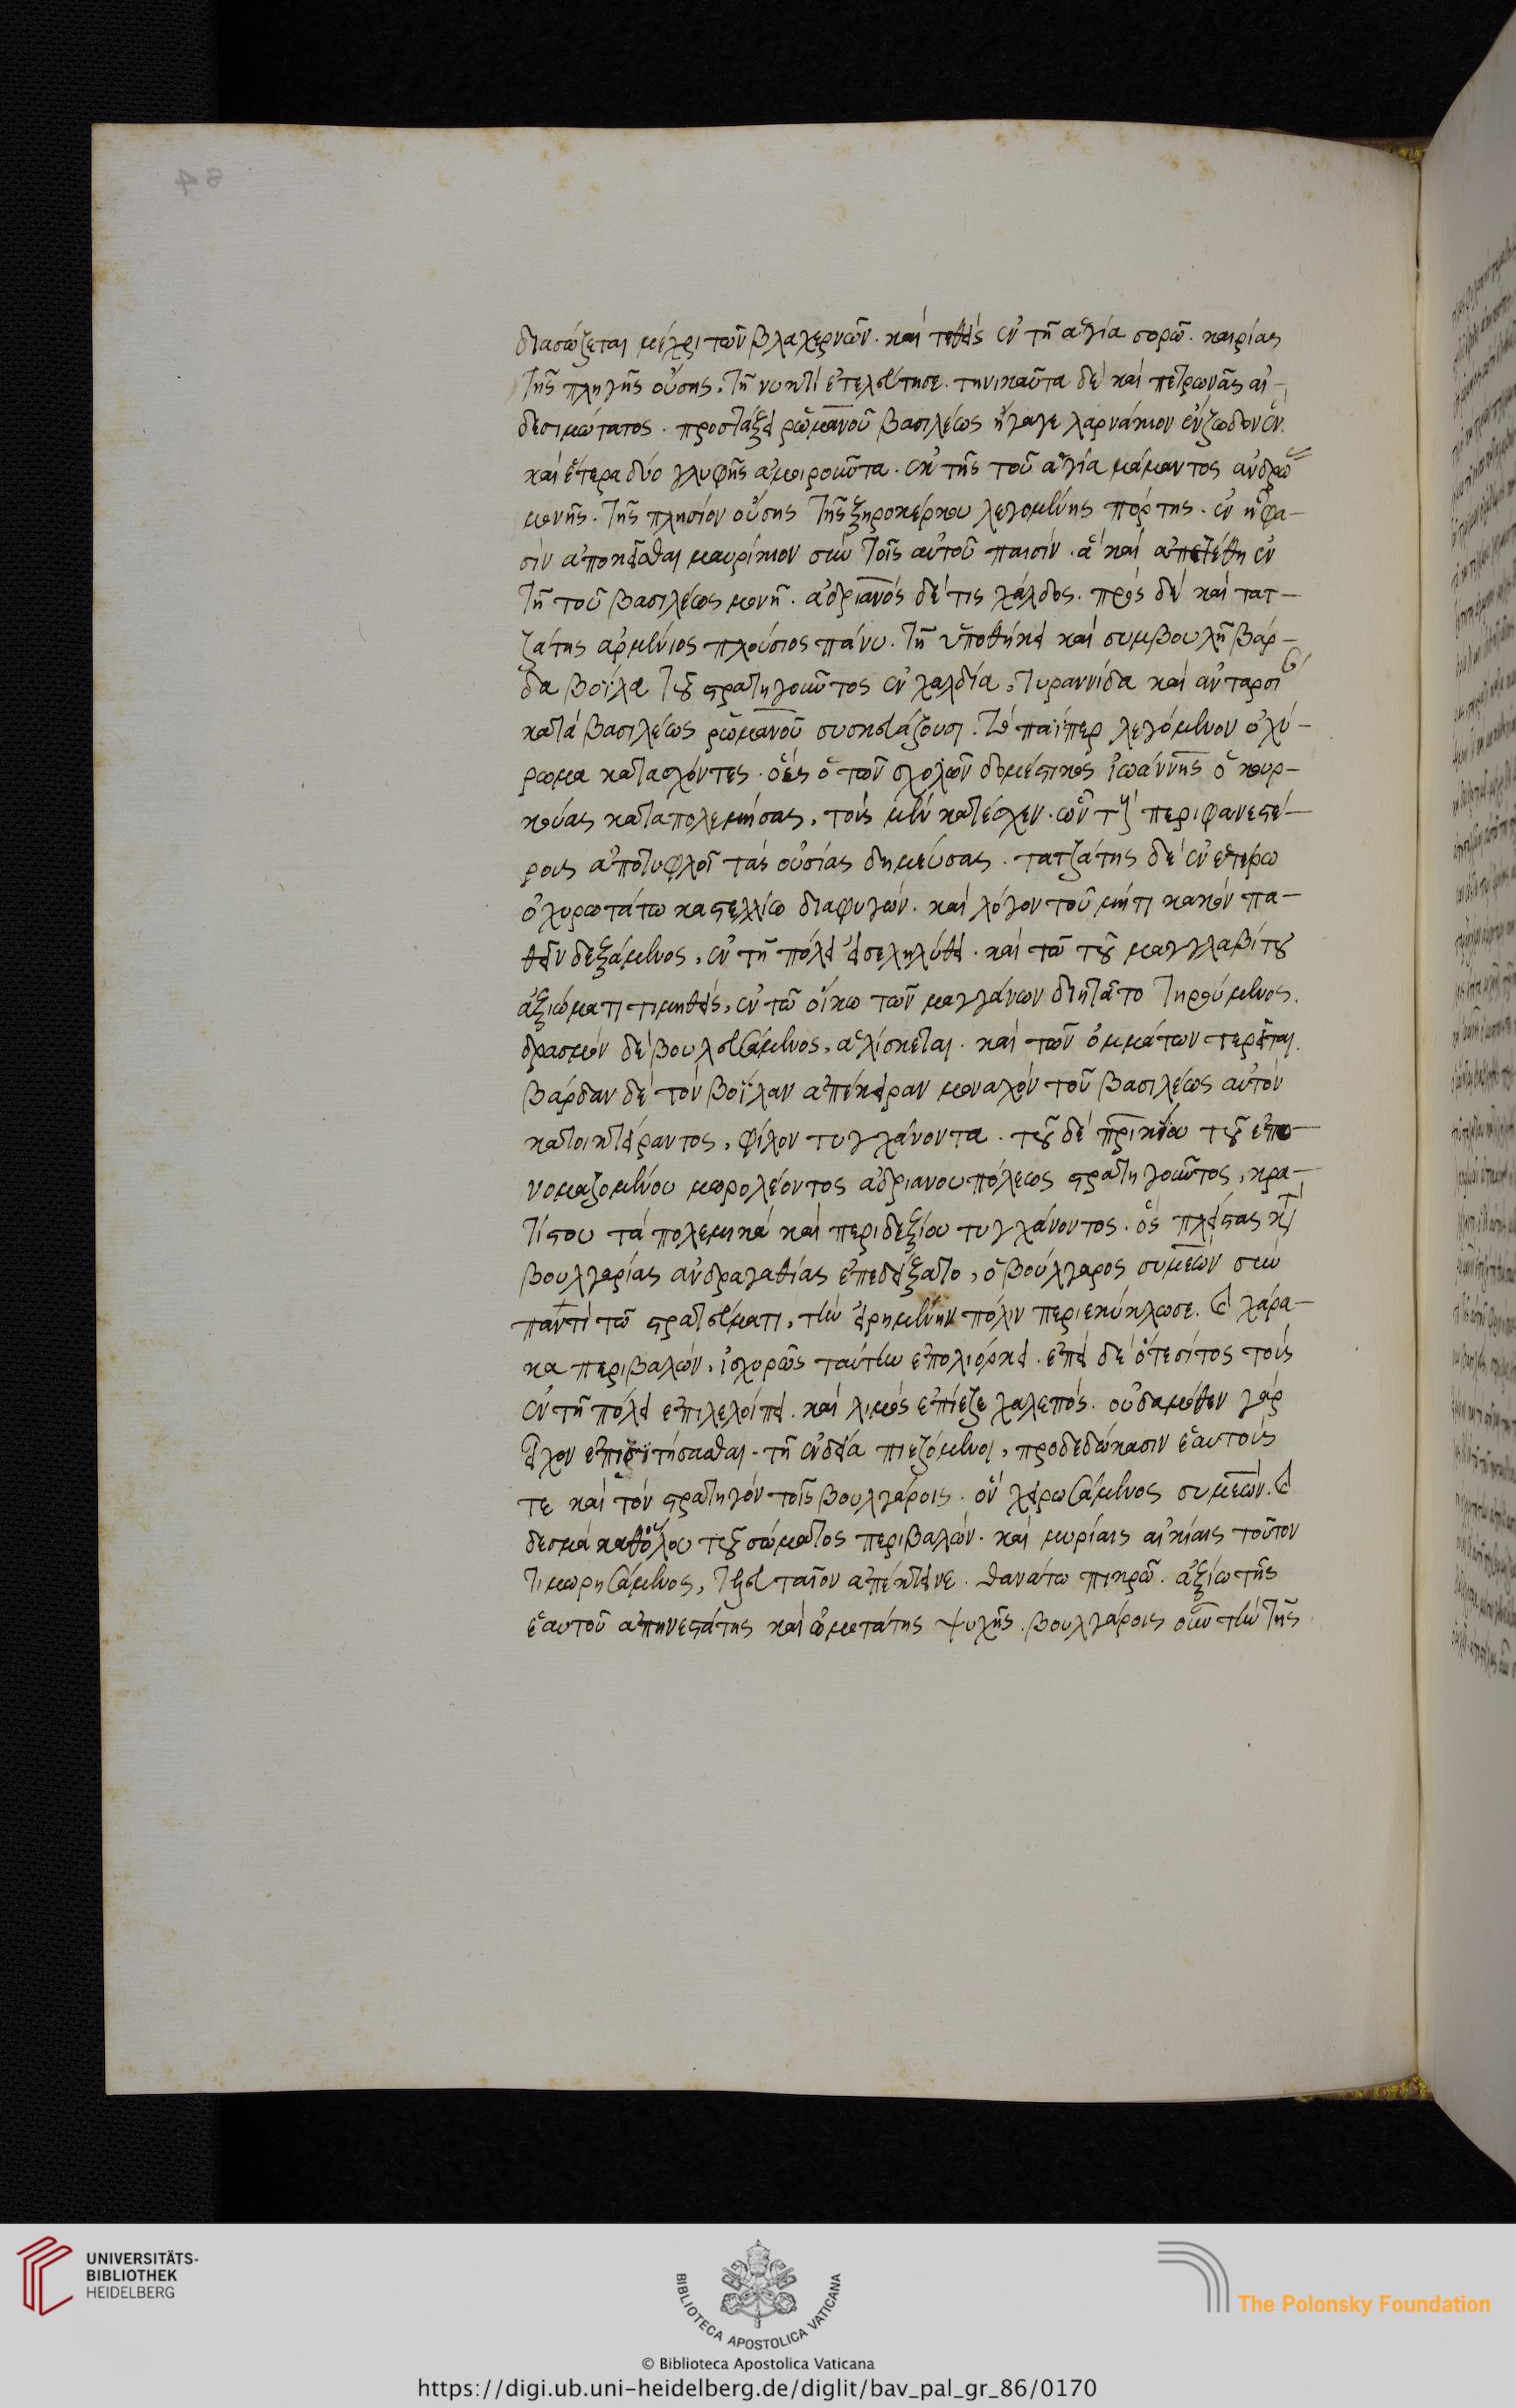 84
διασώζεται μέχρι τῶν βλαχερνῶν. καὶ τεθεὶς ἐν τῆ ἁγία σορῶ. καιρίας
τῆς πληγῆς οὔσης, τῆ νυκτὶ ἐτελεύτησε. τηνικαῦτα δὲ καὶ πετρωνᾶς αἰ-
δεσιμώτατος. προστάξει ῥωμανοῦ βασιλέως ἤγαγε λαρνάκιον ἔνζωδον ἕν.
καὶ ἕτερα δύο γλυφῆς ἀμοιροῦντα. ἐκ τῆς τοῦ ἁγία μάμαντος ἀνδρώ
μονῆς. τῆς πλησίον οὔσης τῆς ξηροκέρκου λεγομένης πόρτης. ἐν ἧ φα-
σὶν ἀποκεῖσθαι μαυρίκιον σὺν τοῖς αὐτοῦ παισίν. ἃ καὶ ἀπετέθη ἐν
τῆ τοῦ βασιλέως μονῆ. ἀδριανὸς δέ τις χάλδος. πρὸς δὲ καὶ τατ-
ζάτης ἀρμένιος πλούσιος πάνυ. τῆ ὑποθήκει καὶ συμβουλῆ βάρ-
δα βοΐλα τοῦ στρατηγοῦντος ἐν χαλδία, τυραννίδα καὶ ἀνταρσι
κατὰ βασιλέως ῥωμανοῦ συσκευάζουσι. τὸ παΐπερ λεγόμενον ὀχύ-
ρωμα κατασχόντες. οὓς ὁ τῶν σχολῶν δομέστικος ἰωάννης ὁ κουρ-
κούας καταπολεμήσας, τοὺς μὲν κατέσχεν. ὧν τοὺς περιφανεστέ-
ρους ἀποτυφλοῖ τὰς οὐσίας δημεύσας. τατζάτης δὲ ἐν ἑτέρω
ὀχυρωτάτω καστελλίω διαφυγών. καὶ λόγον τοῦ μήτι κακὸν πα-
θεῖν δεξάμενος, ἐν τῆ πόλει εἰσεληλύθει. καὶ τῶ τοῦ μαγγλαβίτου
ἀξιώματι τιμηθείς, ἐν τῶ οἴκω τῶν μαγγάνων διητᾶτο τηρούμενος.
δρασμὸν δὲ βουλευσάμενος, ἁλίσκεται. καὶ τῶν ὀμμάτων στερεῖται.
βάρδαν δὲ τὸν βοΐλαν ἀπέκειραν μοναχὸν τοῦ βασιλέως αὐτὸν
κατοικτείραντος, φίλον τυγχάνοντα. τοῦ δὲ πρικίου τοῦ ἐπο-
νομαζομένου μωρολέοντος ἀδριανουπόλεως στρατηγοῦντος, κρα-
τίστου τὰ πολεμικὰ καὶ περιδεξίου τυγχάνοντος. ὃς πλείστας κατὰ
βουλγαρίας ἀνδραγαθίας ἐπεδείξατο, ὁ βούλγαρος συμεὼν σὺν
παντὶ τῶ στρατεύματι, τὴν εἰρημένην πόλιν περιεκύκλωσε. καὶ χάρα-
κα περιβαλών, ἰσχυρῶς ταύτην ἐπολιόρκει. ἐπεὶ δὲ ὅτε σίτος τοὺς
ἐν τῆ πόλει ἐπιλελοίπει. καὶ λιμὸς ἐπίεζε χαλεπός. οὐδαμόθεν γὰρ
εἶχον ἐπισιτήσασθαι. τῆ ἐνδεία πιεζόμενοι, προδεδώκασιν ἑαυτούς
τε καὶ τὸν στρατηγὸν τοῖς βουλγάροις. ὃν χειρωσάμενος συμεών. καὶ
δεσμὰ καθόλου τοῦ σώματος περιβαλών. καὶ μυρίαις αἰκίαις τοῦτον
τιμωρησάμενος, τελευταῖον ἀπέκτεινε. θανάτω πικρῶ. ἀξίω τῆς
ἑαυτοῦ ἀπηνεστάτης καὶ ὠμοτάτης ψυχῆς. βουλγάροις οὖν τὴν τῆς
UNIVERSITÄTS-
BIBLIOTHEK
HEIDELBERG
BIBLIOTECA APOSTOLICA VATICANA
The Polonsky Foundation
© Biblioteca Apostolica Vaticana
https://digi.ub.uni-heidelberg.de/diglit/bav_pal_gr_86/0170